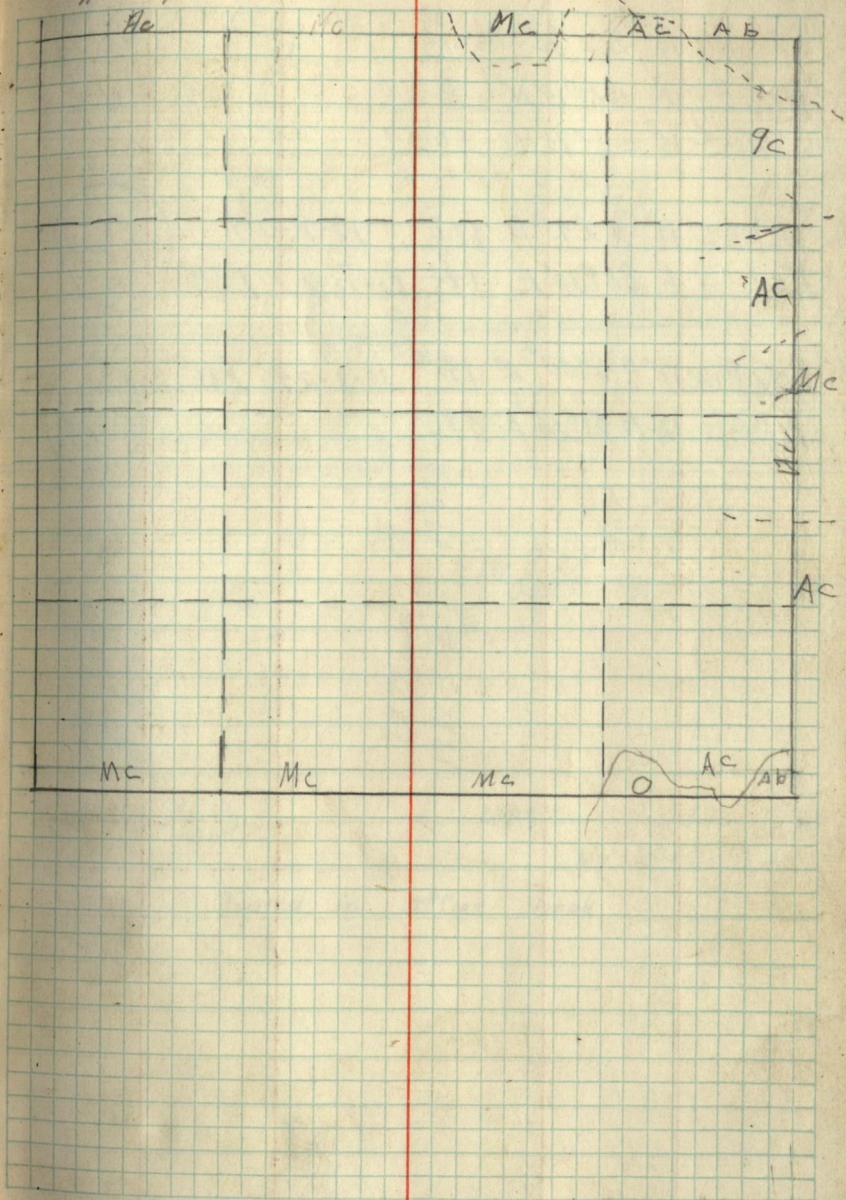 Ac Mc Mc Ac Ab
9c
Ac
Mc
Ac
Mc Mc Mc O Ac Ab